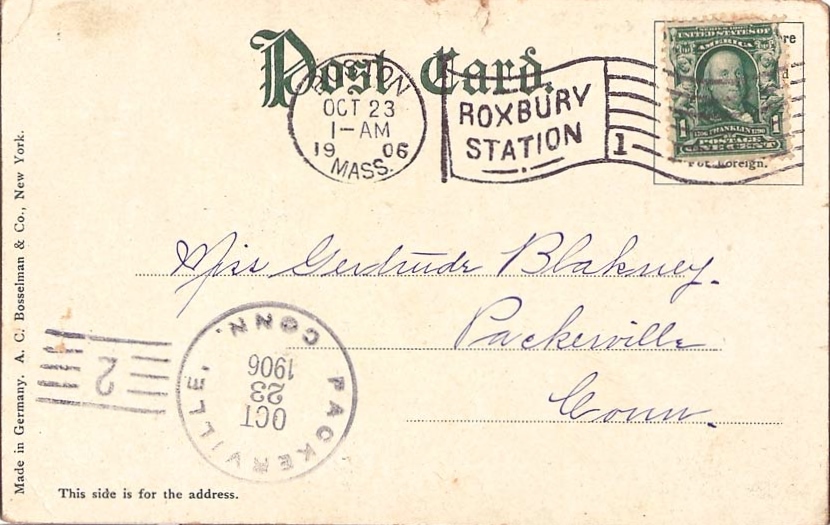 Post Card.
BOSTON
OCT 23
1-AM
19 06
MASS.
ROXBURY
STATION
1
SERIES 1902
UNITED STATES OF
AMERICA
1706 FRANKLIN 1790
1 POSTAGE 1
ONE CENT
For Foreign.
Miss Gertrude Blakney.
Packerville
Conn.
PACKERVILLE, CONN.
OCT
23
1906
2
Made in Germany. A. C. Bosselman & Co., New York.
This side is for the address.